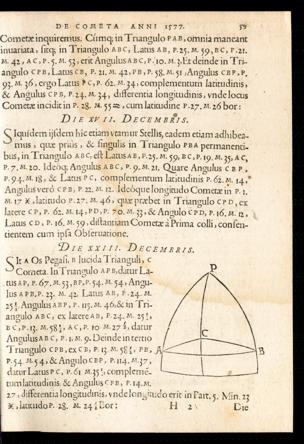 DE COMETA ANNI 1577.
Cometæ inquiremus. Cúmq; in Triangulo PAB, omnia maneant
inuariata, sitq; in Triangulo ABC, Latus AB, P. 25. M. 59, BC, P. 21.
M. 42, AC, P. 5. M. 53, erit Angulus ABC, P. 10. M. 3. Et deinde in Tri-
angulo CPB, Latus CB, P. 21. M. 42, PB, P. 58. M. 51, Angulus CBP, P.
93. M. 36, ergo Latus PC, P. 62. M. 34, complementum latitudinis,
& Angulus CPB, P. 24. M. 34, differentia longitudinis, vnde locus
Cometæ incidit in P. 28. M. 55 ♒, cum latitudine P. 27. M. 26 bor:
DIE XVII. DECEMBRIS.
Siquidem ijsdem hic etiam vtamur Stellis, eadem etiam adhibea-
mus, quæ priùs, & singulis in Triangulo PBA permanenti-
bus, in Triangulo ABC, est Latus AB, P. 25. M. 59, BC, P. 19. M. 35, AC,
P. 7. M. 20. Ideóq; Angulus ABC, P. 9. M. 21. Quare Angulus CBP,
P. 94. M. 18, & Latus PC, complementum latitudinis P. 62. M. 14.
Angulus verò CPB, P. 22. M. 12. Ideóque longitudo Cometæ in P. 1.
M. 17 ♓, latitudo P. 27. M. 46, quæ præbet in Triangulo CPD, ex
latere CP, P. 62. M. 14, PD, P. 70. M. 33, & Angulo CPD, P. 16. M. 12,
Latus CD, P. 16. M. 59, distantiam à Prima colli, consen-
tientem cum ipsa Obseruatione.
DIE XXIII. DECEMBRIS.
Sit A Os Pegasi, B lucida Trianguli, C
Cometa. In Triangulo APB, datur La-
tus AP, P. 67. M. 53, BP, P. 54. M. 54, Angu-
lus APB, P. 23. M. 42. Latus AB, P. 24. M.
Angulus ABP, P. 115. M. 46, & in Tri-
angulo ABC, ex latere AB, P. 24. M.
BC, P. 13. M. AC, P. 10 M. datur
Angulus ABC, P. 1. M. 9. Deinde in tertio
Triangulo CPB, ex CB, P. 13. M. PB,
P. 54. M. 54, & Angulo CBP, P. 114. M. 37,
datur Latus PC, P. 61. M. complemē-
tum latitudinis, & Angulus CPB, P. 14. M.
27, differentia longitudinis, vnde longitudo erit in Part. 5. Min. 23
♓, latitudo P. 28. M. Bor:
H 2 Die
P
C
A
B